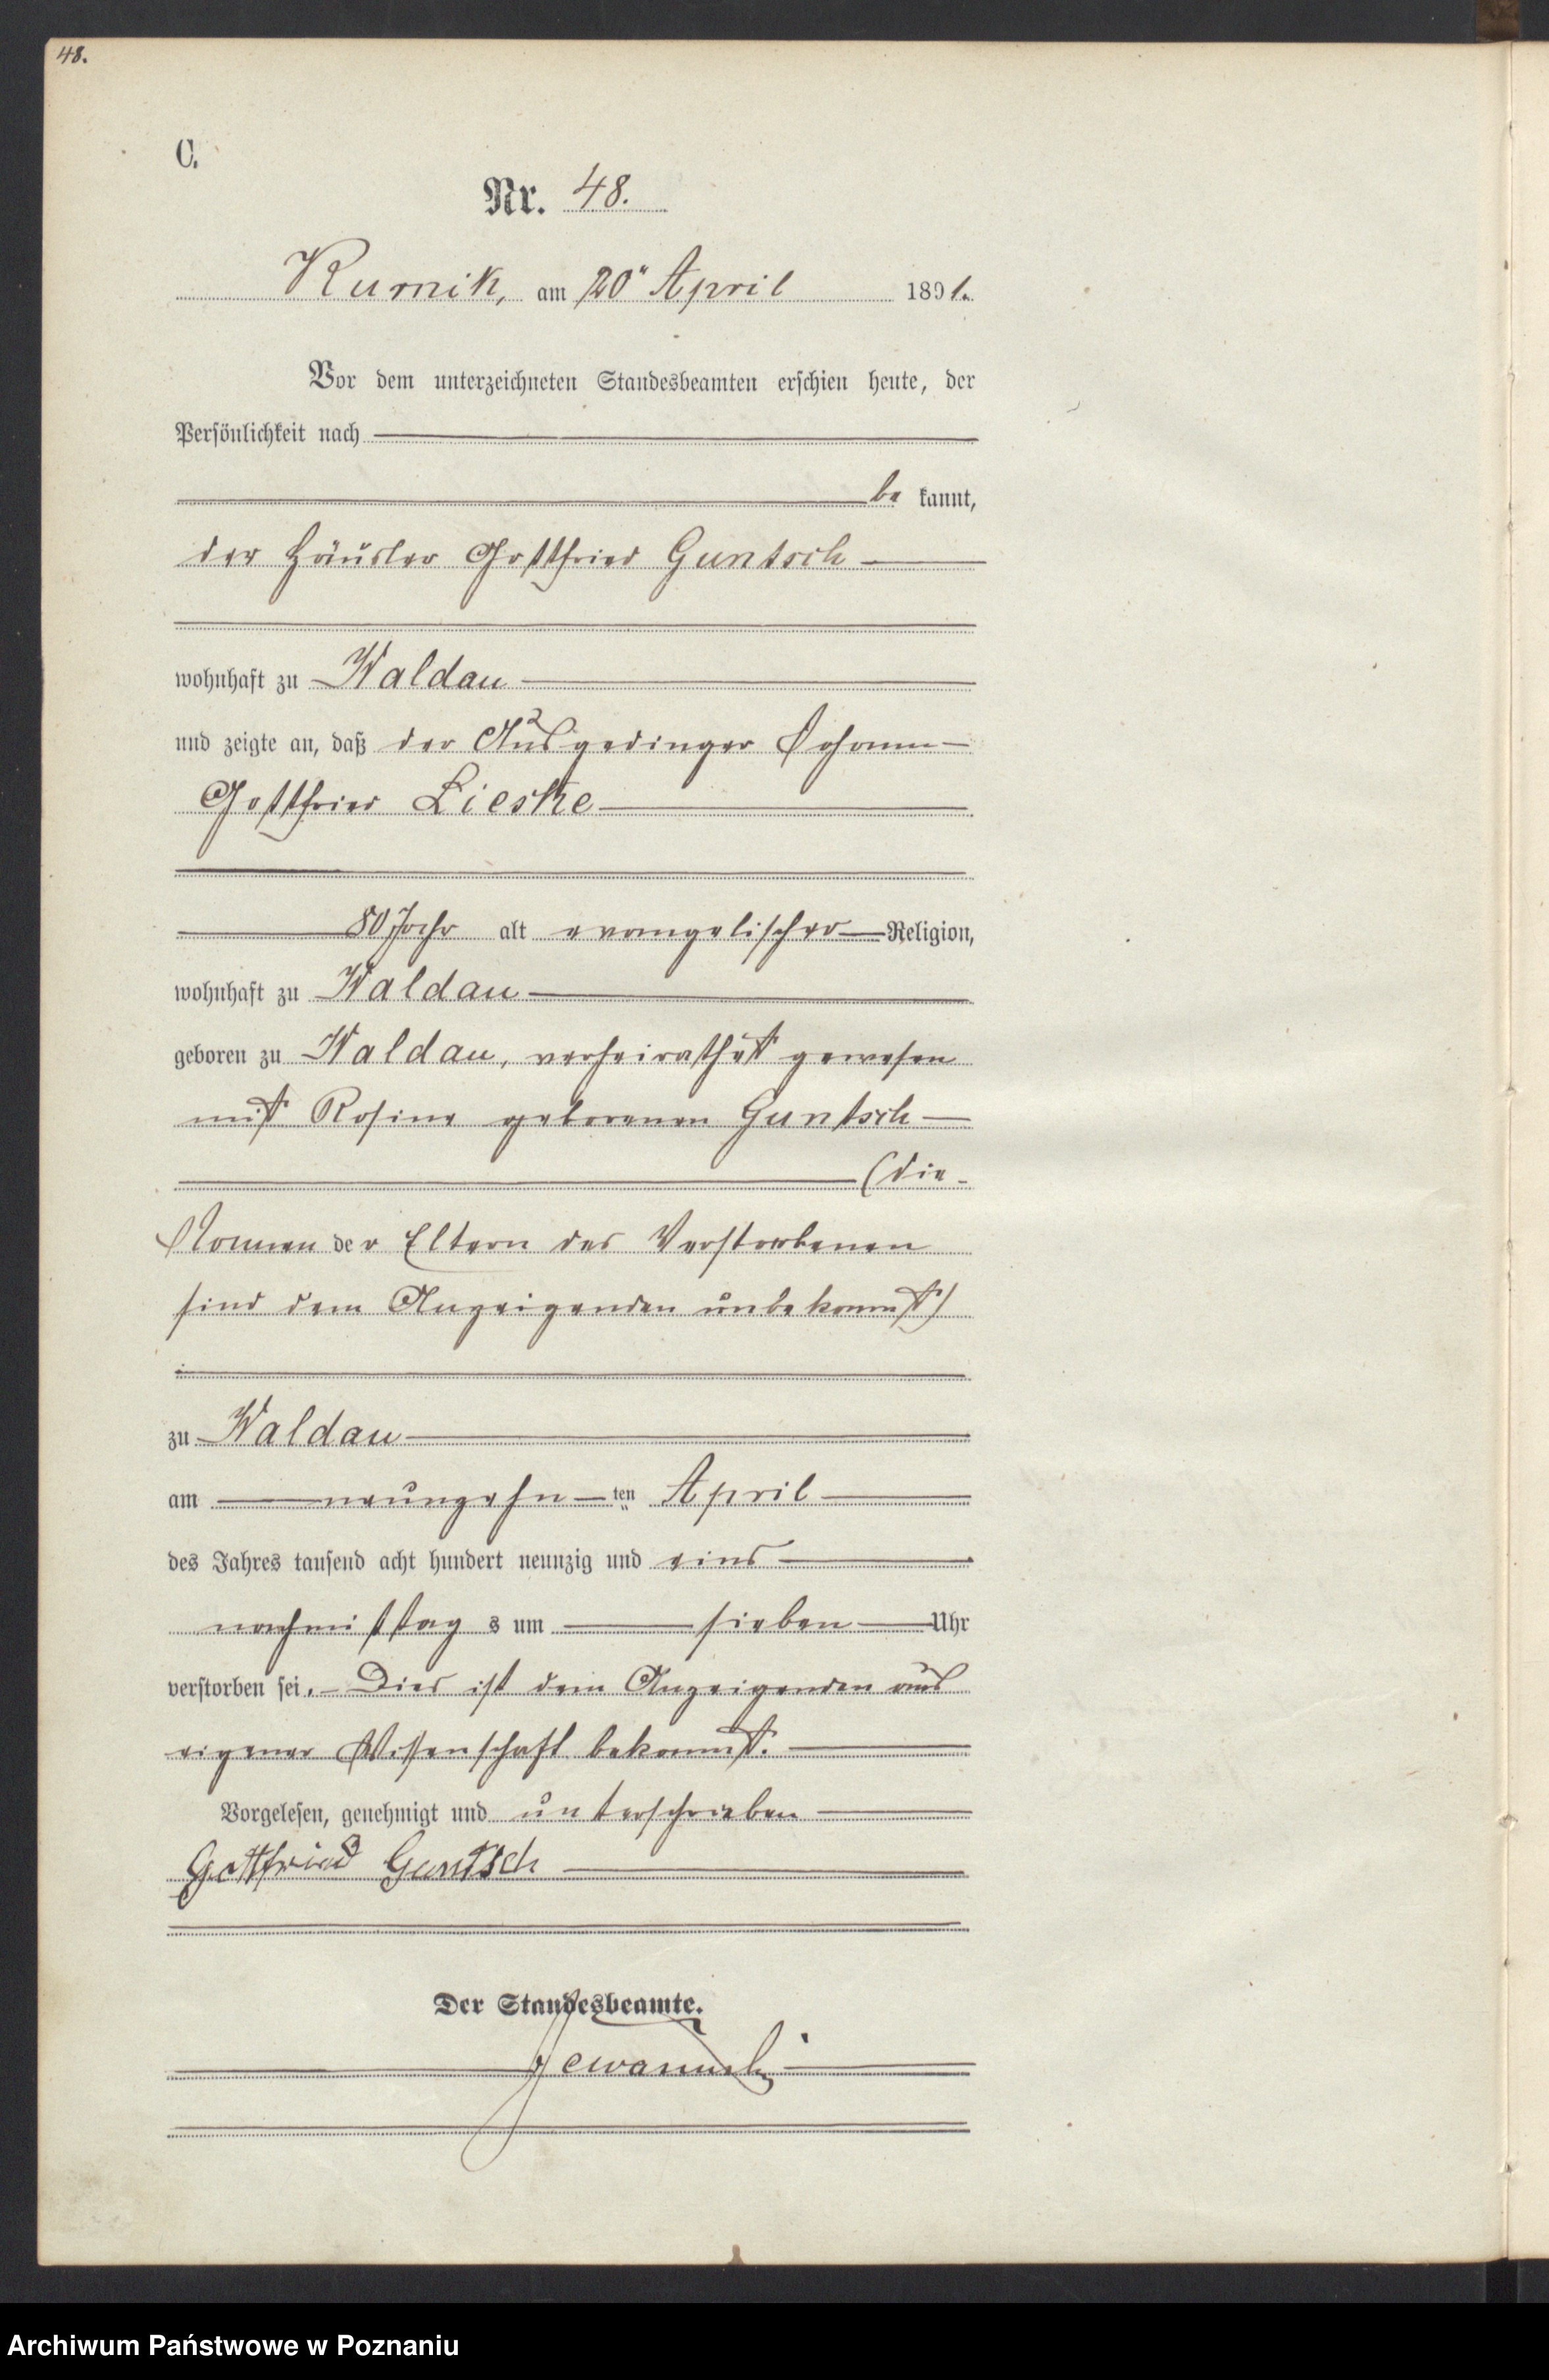 48.
C.
Nr. 48.
Kurnik, am 20" April 1891.
Vor dem unterzeichneten Standesbeamten erschien heute, der
Persönlichkeit nach
be kannt,
der Häusler Gottfried Guntsch
wohnhaft zu Waldau
und zeigte an, daß der Ausgedinger Johann
Gottfried Lieske
80 Jahr alt evangelischer Religion,
wohnhaft zu Waldau
geboren zu Waldau, verheirathet gewesen
mit Rosine geborenen Guntsch
(die
Namen der Eltern des Verstorbenen
sind dem Anzeigenden unbekannt)
zu Waldau
am neunzehn ten April
des Jahres tausend acht hundert neunzig und eins
nachmittag s um sieben Uhr
verstorben sei. Dies ist dem Anzeigenden aus
eigener Wissenschaft bekannt.
Vorgelesen, genehmigt und unterschrieben
Gottfried Guntsch
Der Standesbeamte.
Archiwum Państwowe w Poznaniu